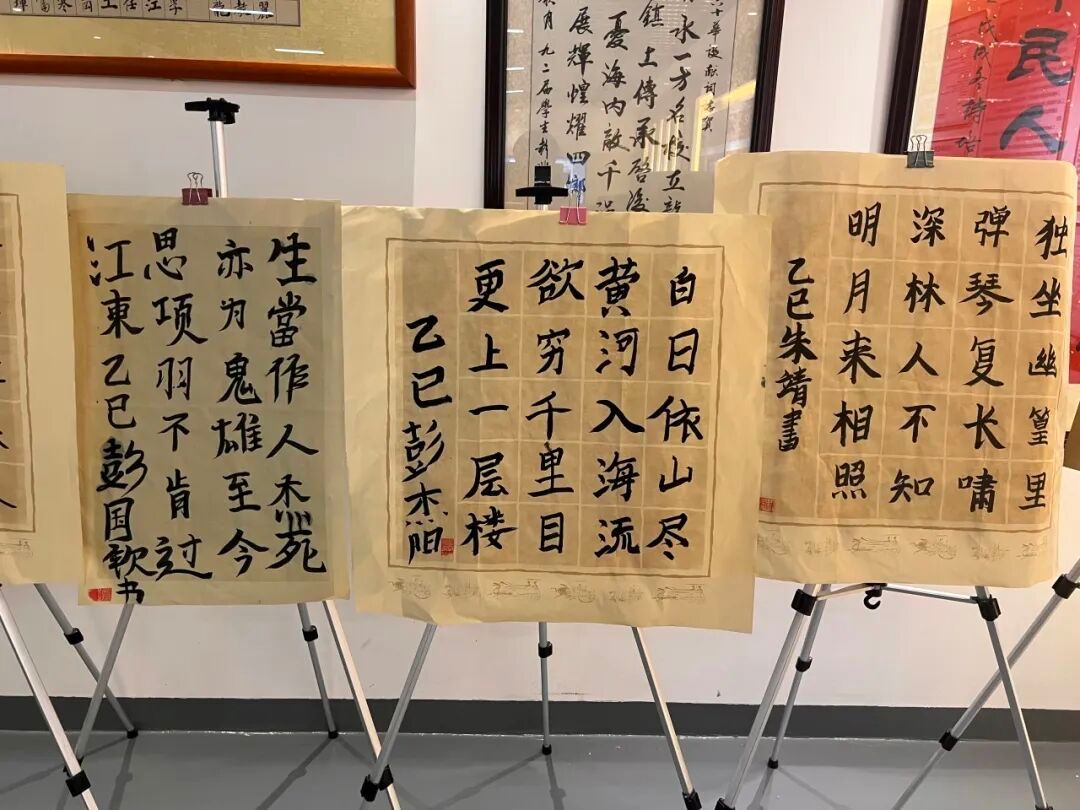 民人
戊戌冬
永一方名校立龍
鎮上傳承啓後
憂海内敵千
展輝煌耀四鄉
月九二届學生
独坐幽篁里
弹琴复长啸
深林人不知
明月来相照
乙巳朱靖書
白日依山尽
黄河入海流
欲穷千里目
更上一层楼
乙巳彭杰阳
生當作人杰死
亦为鬼雄至今
思项羽不肯过
江東乙巳彭国钦书